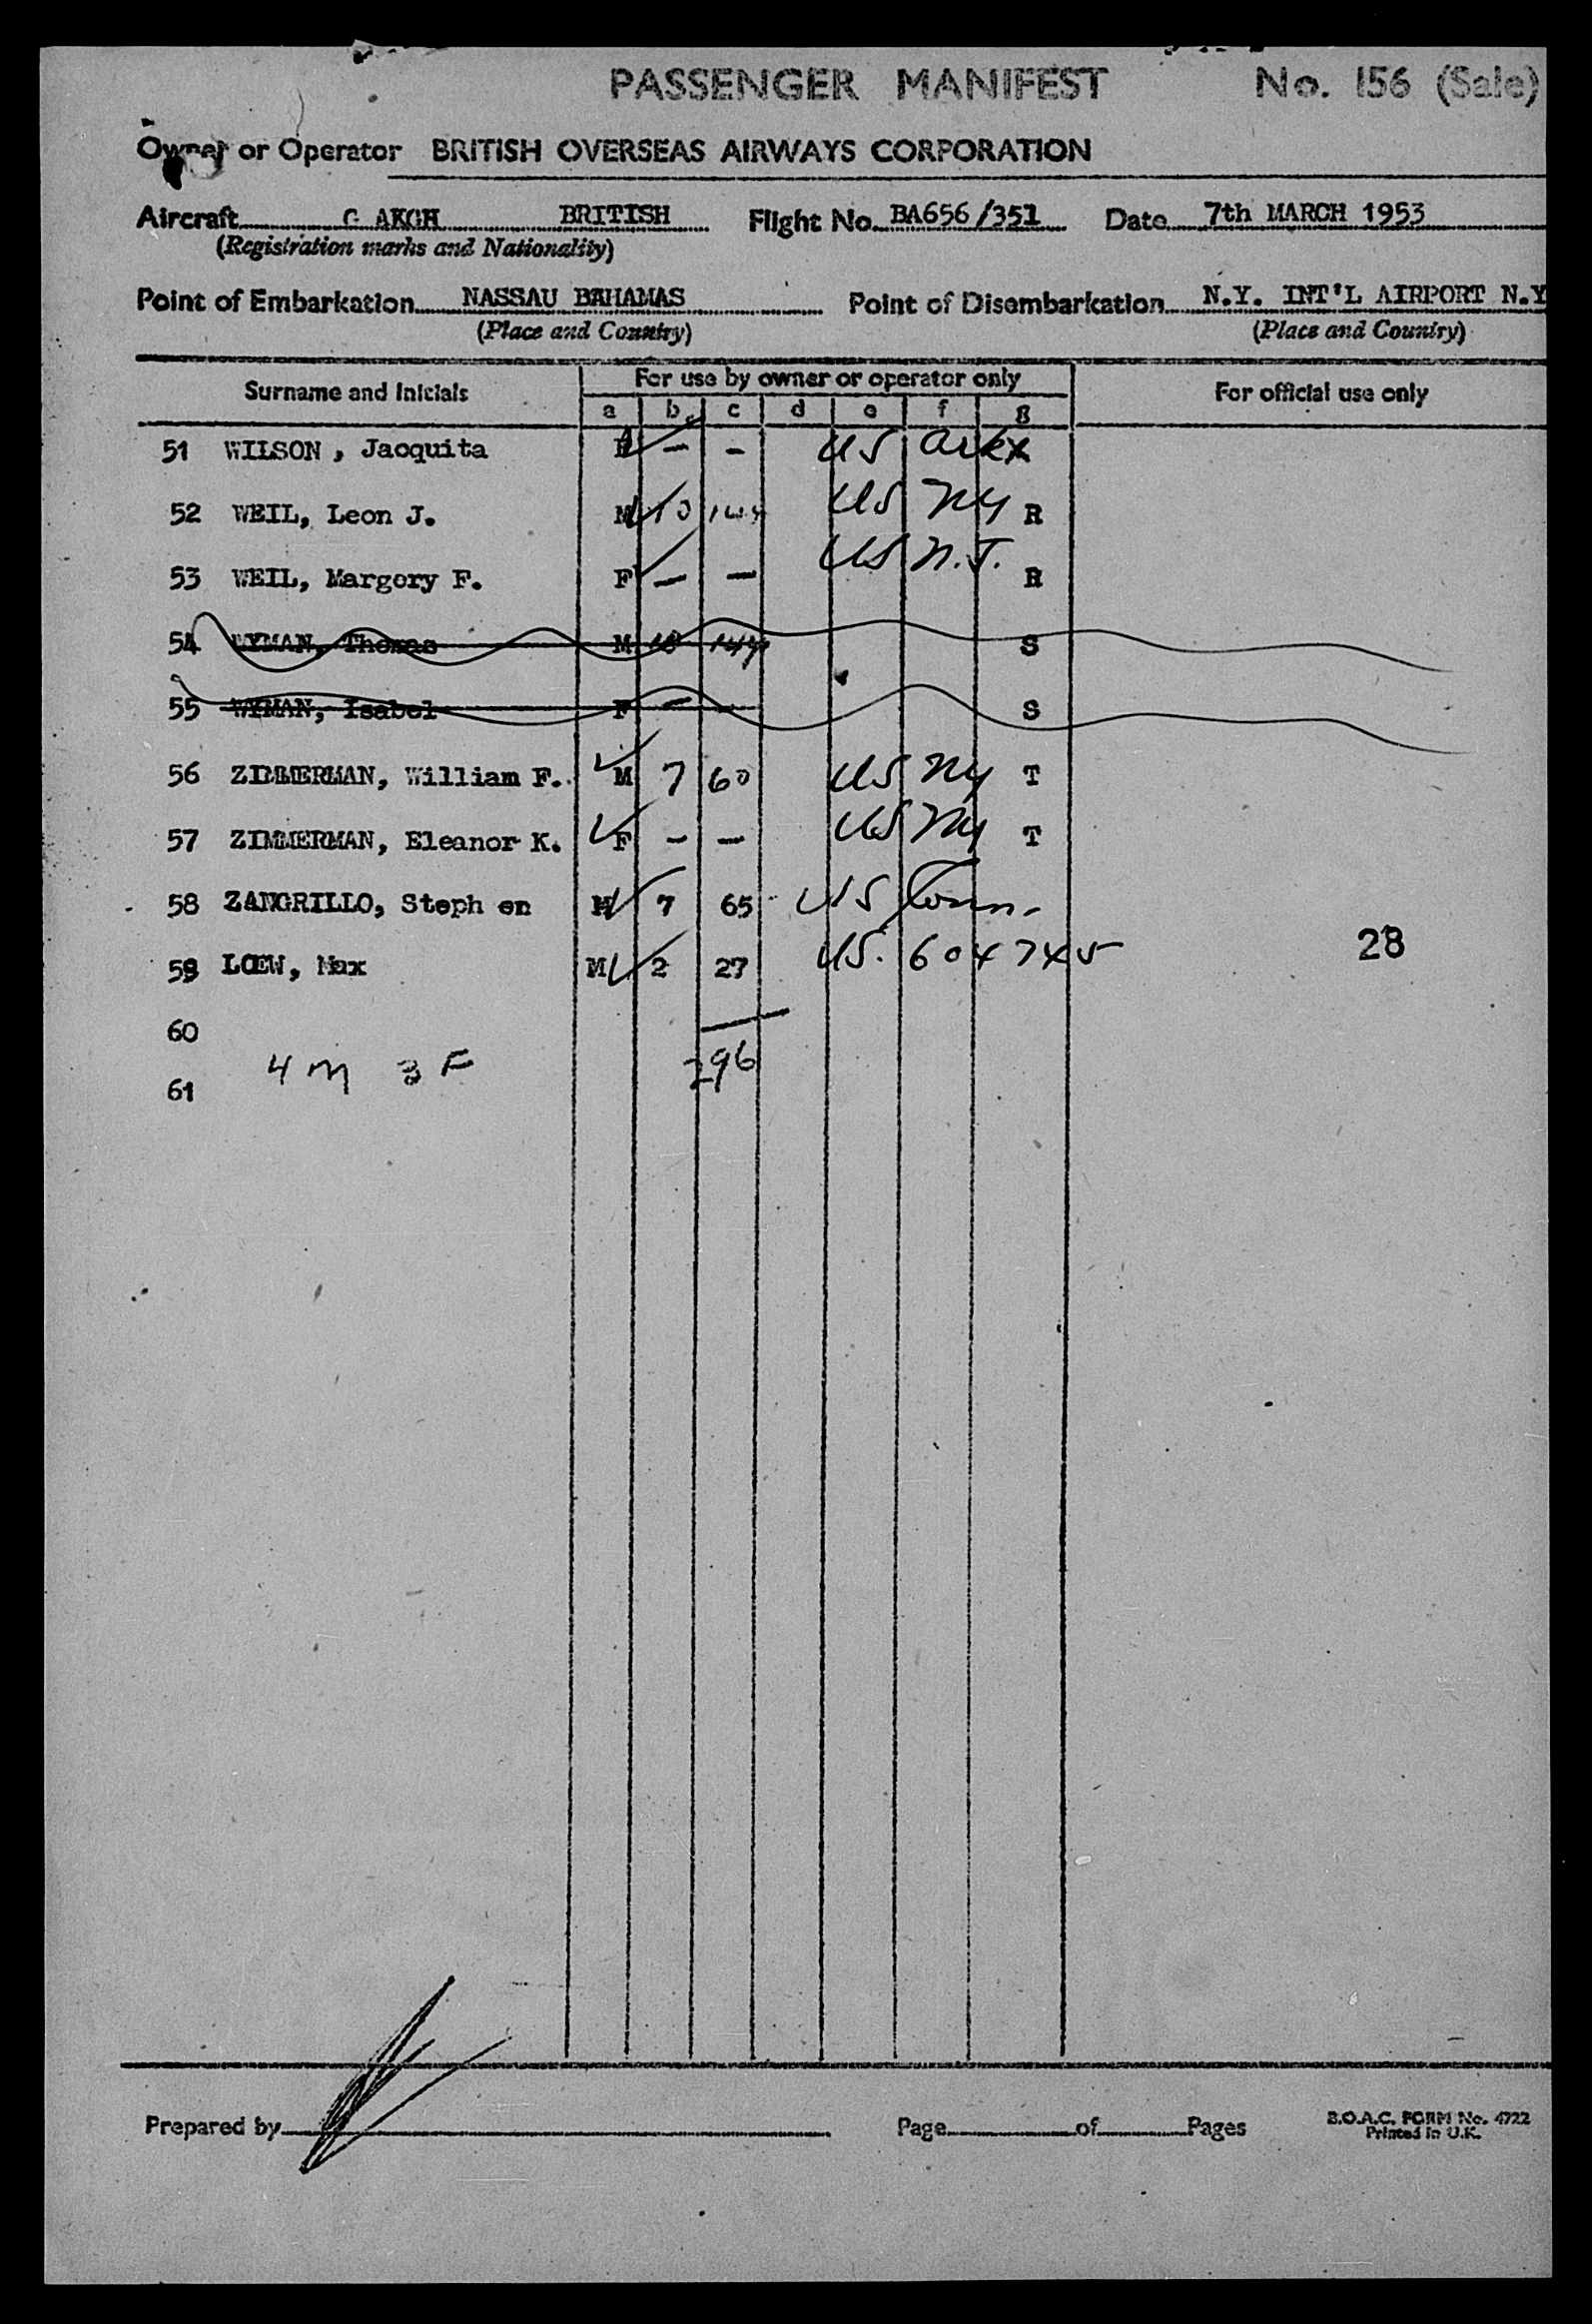 PASSENGER MANIFEST No. 156 (Sale)
Owner or Operator BRITISH OVERSEAS AIRWAYS CORPORATION
Aircraft G AKGH BRITISH Flight No. BA656/351 Date 7th MARCH 1953
(Registration marks and Nationality)
Point of Embarkation NASSAU BAHAMAS Point of Disembarkation N.Y. INT'L AIRPORT N.Y
(Place and Country) (Place and Country)
Surname and Initials For use by owner or operator only For official use only
a b c d e f g
51 WILSON , Jacquita - - US
52 WEIL, Leon J. M 10 144 US NY R
53 WEIL, Margery F. F - - US N.J. R
54 WYMAN, Thomas M 10 144 S
55 WYMAN, Isabel F - - S
56 ZIMMERMAN, William F. M 7 60 US NY T
57 ZIMMERMAN, Eleanor K. F - - US NY T
58 ZANGRILLO, Steph en M 7 65 US Conn.
59 LOEW, Max M 2 27 US. 6047745 28
60
4 M 3 F 296
61
Prepared by Page of Pages
B.O.A.C. FORM No. 4722
Printed in U.K.